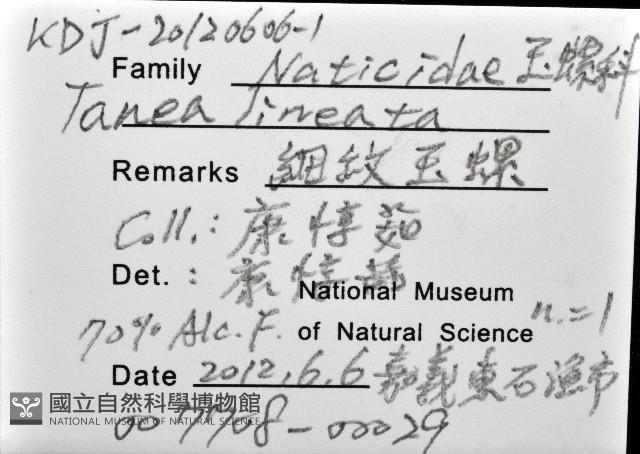 KDJ-20120606-1
Family Naticidae 玉螺科
Tanea lineata
Remarks 細紋玉螺
Coll.: 康惇茹
Det.: 康惇茹
National Museum
70% Alc. F. of Natural Science n.=1
Date 2012.6.6 嘉義東石漁市
國立自然科學博物館
NATIONAL MUSEUM OF NATURAL SCIENCE
007708-00029